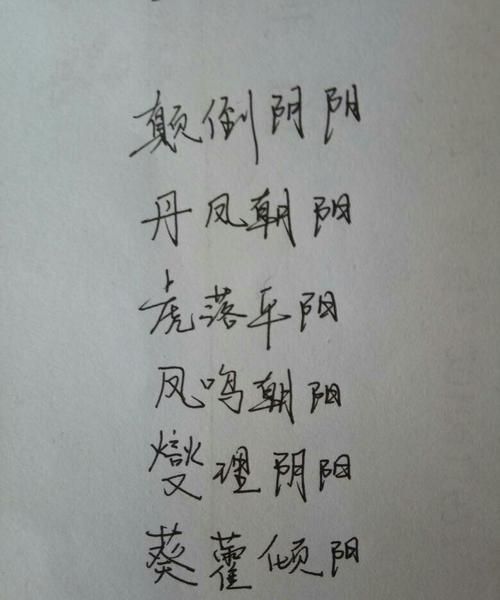 颠倒阴阳
丹凤朝阳
虎落平阳
凤鸣朝阳
燮理阴阳
葵藿倾阳